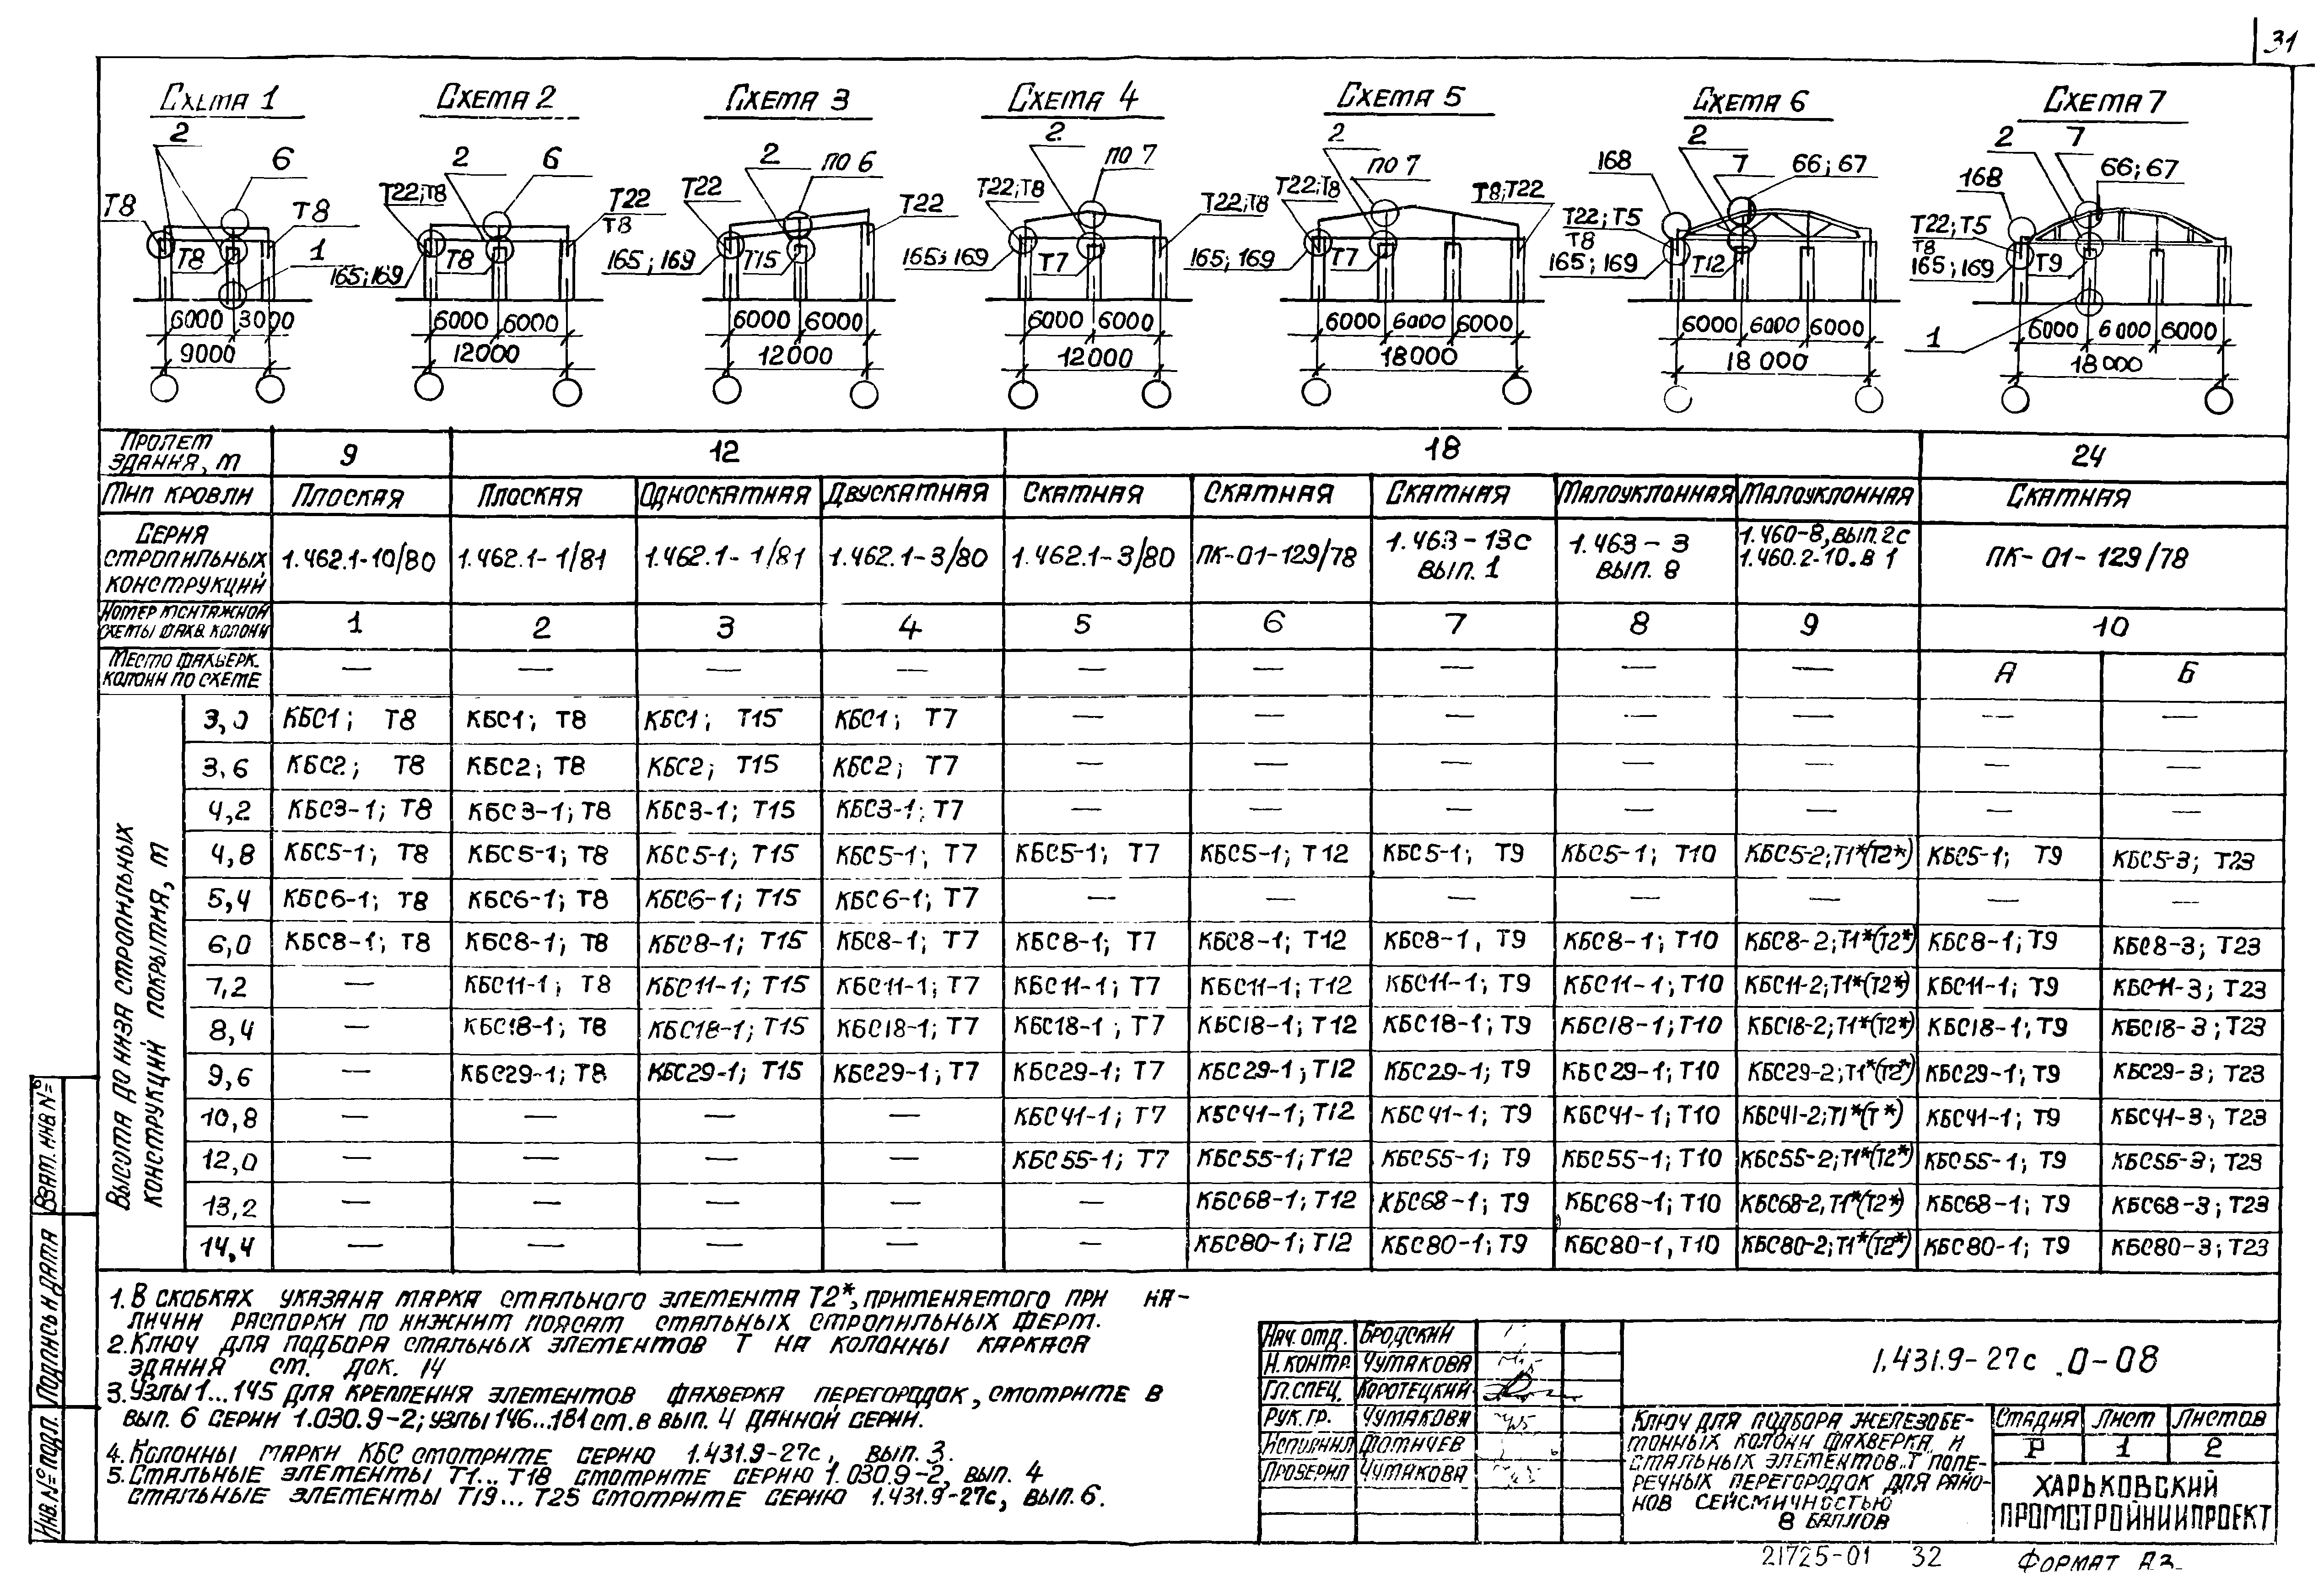 31
Схема 1
Схема 2
Схема 3
Схема 4
Схема 5
Схема 6
Схема 7
2 6 Т8 Т8 Т8 1
6000 3000
9000
2 6 Т22;Т8 Т22 Т8 Т8 165;169
6000 6000
12000
2 по 6 Т22 Т22 165;169 Т15
6000 6000
12000
2 по 7 Т22;Т8 Т22;Т8 165;169 Т7
6000 6000
12000
2 по 7 Т22;Т8 Т8;Т22 165;169 Т7
6000 6000 6000
18000
2 168 7 66;67 Т22;Т5 Т8 165;169 Т12
6000 6000 6000
18 000
2 7 168 66;67 Т22;Т5 Т8 165;169 Т9 1
6000 6000 6000
18 000
Пролет здания, м 9 12 18 24
Тип кровли Плоская Плоская Односкатная Двускатная Скатная Скатная Скатная Малоуклонная Малоуклонная Скатная
Серия стропильных конструкций 1.462.1-10/80 1.462.1-1/81 1.462.1-1/81 1.462.1-3/80 1.462.1-3/80 ПК-01-129/78 1.463-13с вып. 1 1.463-3 вып. 8 1.460-8, вып. 2с 1.460.2-10. в 1 ПК-01-129/78
Номер монтажной схемы фахв. колонн 1 2 3 4 5 6 7 8 9 10
Место фахверк. колонн по схеме — — — — — — — — — А Б
Высота до низа стропильных конструкций покрытия, м
3,0 КБС1; Т8 КБС1; Т8 КБС1; Т15 КБС1; Т7 — — — — — — —
3,6 КБС2; Т8 КБС2; Т8 КБС2; Т15 КБС2; Т7 — — — — — — —
4,2 КБС3-1; Т8 КБС3-1; Т8 КБС3-1; Т15 КБС3-1; Т7 — — — — — — —
4,8 КБС5-1; Т8 КБС5-1; Т8 КБС5-1; Т15 КБС5-1; Т7 КБС5-1; Т7 КБС5-1; Т12 КБС5-1; Т9 КБС5-1; Т10 КБС5-2;Т1*(Т2*) КБС5-1; Т9 КБС5-3; Т23
5,4 КБС6-1; Т8 КБС6-1; Т8 КБС6-1; Т15 КБС6-1; Т7 — — — — — — —
6,0 КБС8-1; Т8 КБС8-1; Т8 КБС8-1; Т15 КБС8-1; Т7 КБС8-1; Т7 КБС8-1; Т12 КБС8-1, Т9 КБС8-1; Т10 КБС8-2;Т1*(Т2*) КБС8-1; Т9 КБС8-3; Т23
7,2 — КБС11-1; Т8 КБС11-1; Т15 КБС11-1; Т7 КБС11-1; Т7 КБС11-1; Т12 КБС11-1; Т9 КБС11-1; Т10 КБС11-2;Т1*(Т2*) КБС11-1; Т9 КБС11-3; Т23
8,4 — КБС18-1; Т8 КБС18-1; Т15 КБС18-1; Т7 КБС18-1; Т7 КБС18-1; Т12 КБС18-1; Т9 КБС18-1; Т10 КБС18-2;Т1*(Т2*) КБС18-1; Т9 КБС18-3; Т23
9,6 — КБС29-1; Т8 КБС29-1; Т15 КБС29-1; Т7 КБС29-1; Т7 КБС29-1; Т12 КБС29-1; Т9 КБС29-1; Т10 КБС29-2;Т1*(Т2*) КБС29-1; Т9 КБС29-3; Т23
10,8 — — — — КБС41-1; Т7 КБС41-1; Т12 КБС41-1; Т9 КБС41-1; Т10 КБС41-2;Т1*(Т*) КБС41-1; Т9 КБС41-3; Т23
12,0 — — — — КБС55-1; Т7 КБС55-1; Т12 КБС55-1; Т9 КБС55-1; Т10 КБС55-2;Т1*(Т2*) КБС55-1; Т9 КБС55-3; Т23
13,2 — — — — — КБС68-1; Т12 КБС68-1; Т9 КБС68-1; Т10 КБС68-2,Т1*(Т2*) КБС68-1; Т9 КБС68-3; Т23
14,4 — — — — — КБС80-1; Т12 КБС80-1; Т9 КБС80-1, Т10 КБС80-2;Т1*(Т2*) КБС80-1; Т9 КБС80-3; Т23
1. В скобках указана марка стального элемента Т2*, применяемого при на-
личии распорки по нижним поясам стальных стропильных ферм.
2. Ключ для подбора стальных элементов Т на колонны каркаса
здания см. док. 14
3. Узлы 1...145 для крепления элементов фахверка перегородок, смотрите в
вып. 6 серии 1.030.9-2; узлы 146...181 см. в вып. 4 данной серии.
4. Колонны марки КБС смотрите серию 1.431.9-27с, вып. 3.
5. Стальные элементы Т1... Т18 смотрите серию 1.030.9-2, вып. 4
стальные элементы Т19... Т25 смотрите серию 1.431.9-27с, вып. 6.
Нач. отд. Бродский
Н. контр. Чумакова
Гл. спец. Коротецкий
Рук. гр. Чумакова
Исполнил Фомичев
Проверил Чумакова
1.431.9-27с .0-08
Ключ для подбора железобе-
тонных колонн фахверка и
стальных элементов „Т" попе-
речных перегородок для райо-
нов сейсмичностью
8 баллов
Стадия Лист Листов
Р 1 2
Харьковский
Промстройниипроект
21725-01 32
Формат А3
Взам. инв №
Подпись и дата
Инв. № подл.